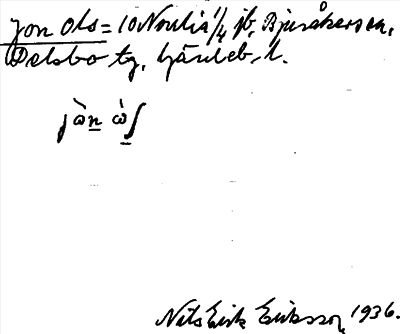 Jon Ols = 10 Norrlia 1/4 jb, Bjuråkers sn,
Delsbo tg, Gävleb. l.
jòn òʃ
Nils Erik Eriksson 1936.